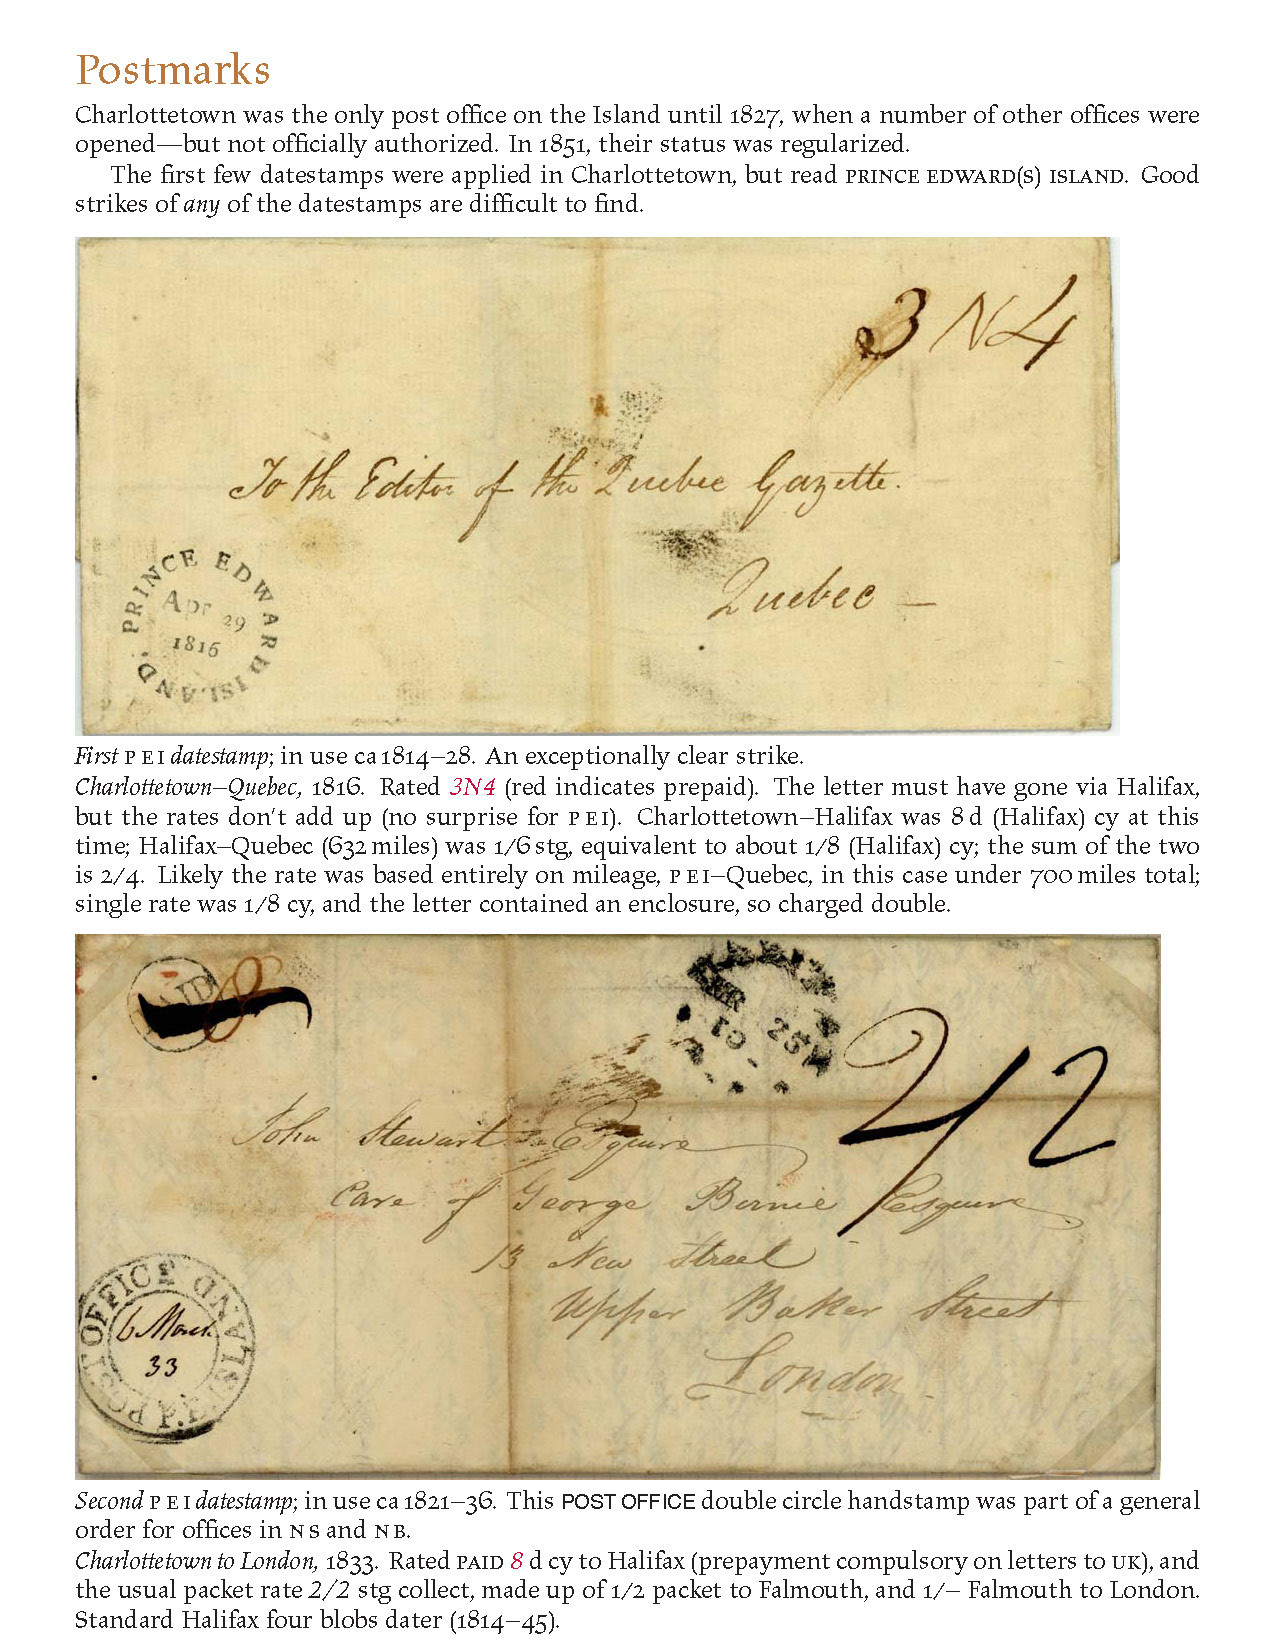 Postmarks
Charlottetown was the only post office on the Island until 1827, when a number of other offices were
opened—but not officially authorized. In 1851, their status was regularized.
The first few datestamps were applied in Charlottetown, but read PRINCE EDWARD(S) ISLAND. Good
strikes of any of the datestamps are difficult to find.
3 N 4
To the Editor of the Quebec Gazette.
Quebec —
PRINCE EDWARD ISLAND.
Apr 29
1816
First PEI datestamp; in use ca 1814–28. An exceptionally clear strike.
Charlottetown–Quebec, 1816. Rated 3N4 (red indicates prepaid). The letter must have gone via Halifax,
but the rates don't add up (no surprise for PEI). Charlottetown–Halifax was 8 d (Halifax) cy at this
time; Halifax–Quebec (632 miles) was 1/6 stg, equivalent to about 1/8 (Halifax) cy; the sum of the two
is 2/4. Likely the rate was based entirely on mileage, PEI–Quebec, in this case under 700 miles total;
single rate was 1/8 cy, and the letter contained an enclosure, so charged double.
PAID 8
2/2
John Stewart Esquire
Care of George Birnie Esquire
13 New Street
Upper Baker Street
London
POST OFFICE P.E. ISLAND
6 March
33
Second PEI datestamp; in use ca 1821–36. This POST OFFICE double circle handstamp was part of a general
order for offices in NS and NB.
Charlottetown to London, 1833. Rated PAID 8 d cy to Halifax (prepayment compulsory on letters to UK), and
the usual packet rate 2/2 stg collect, made up of 1/2 packet to Falmouth, and 1/– Falmouth to London.
Standard Halifax four blobs dater (1814–45).